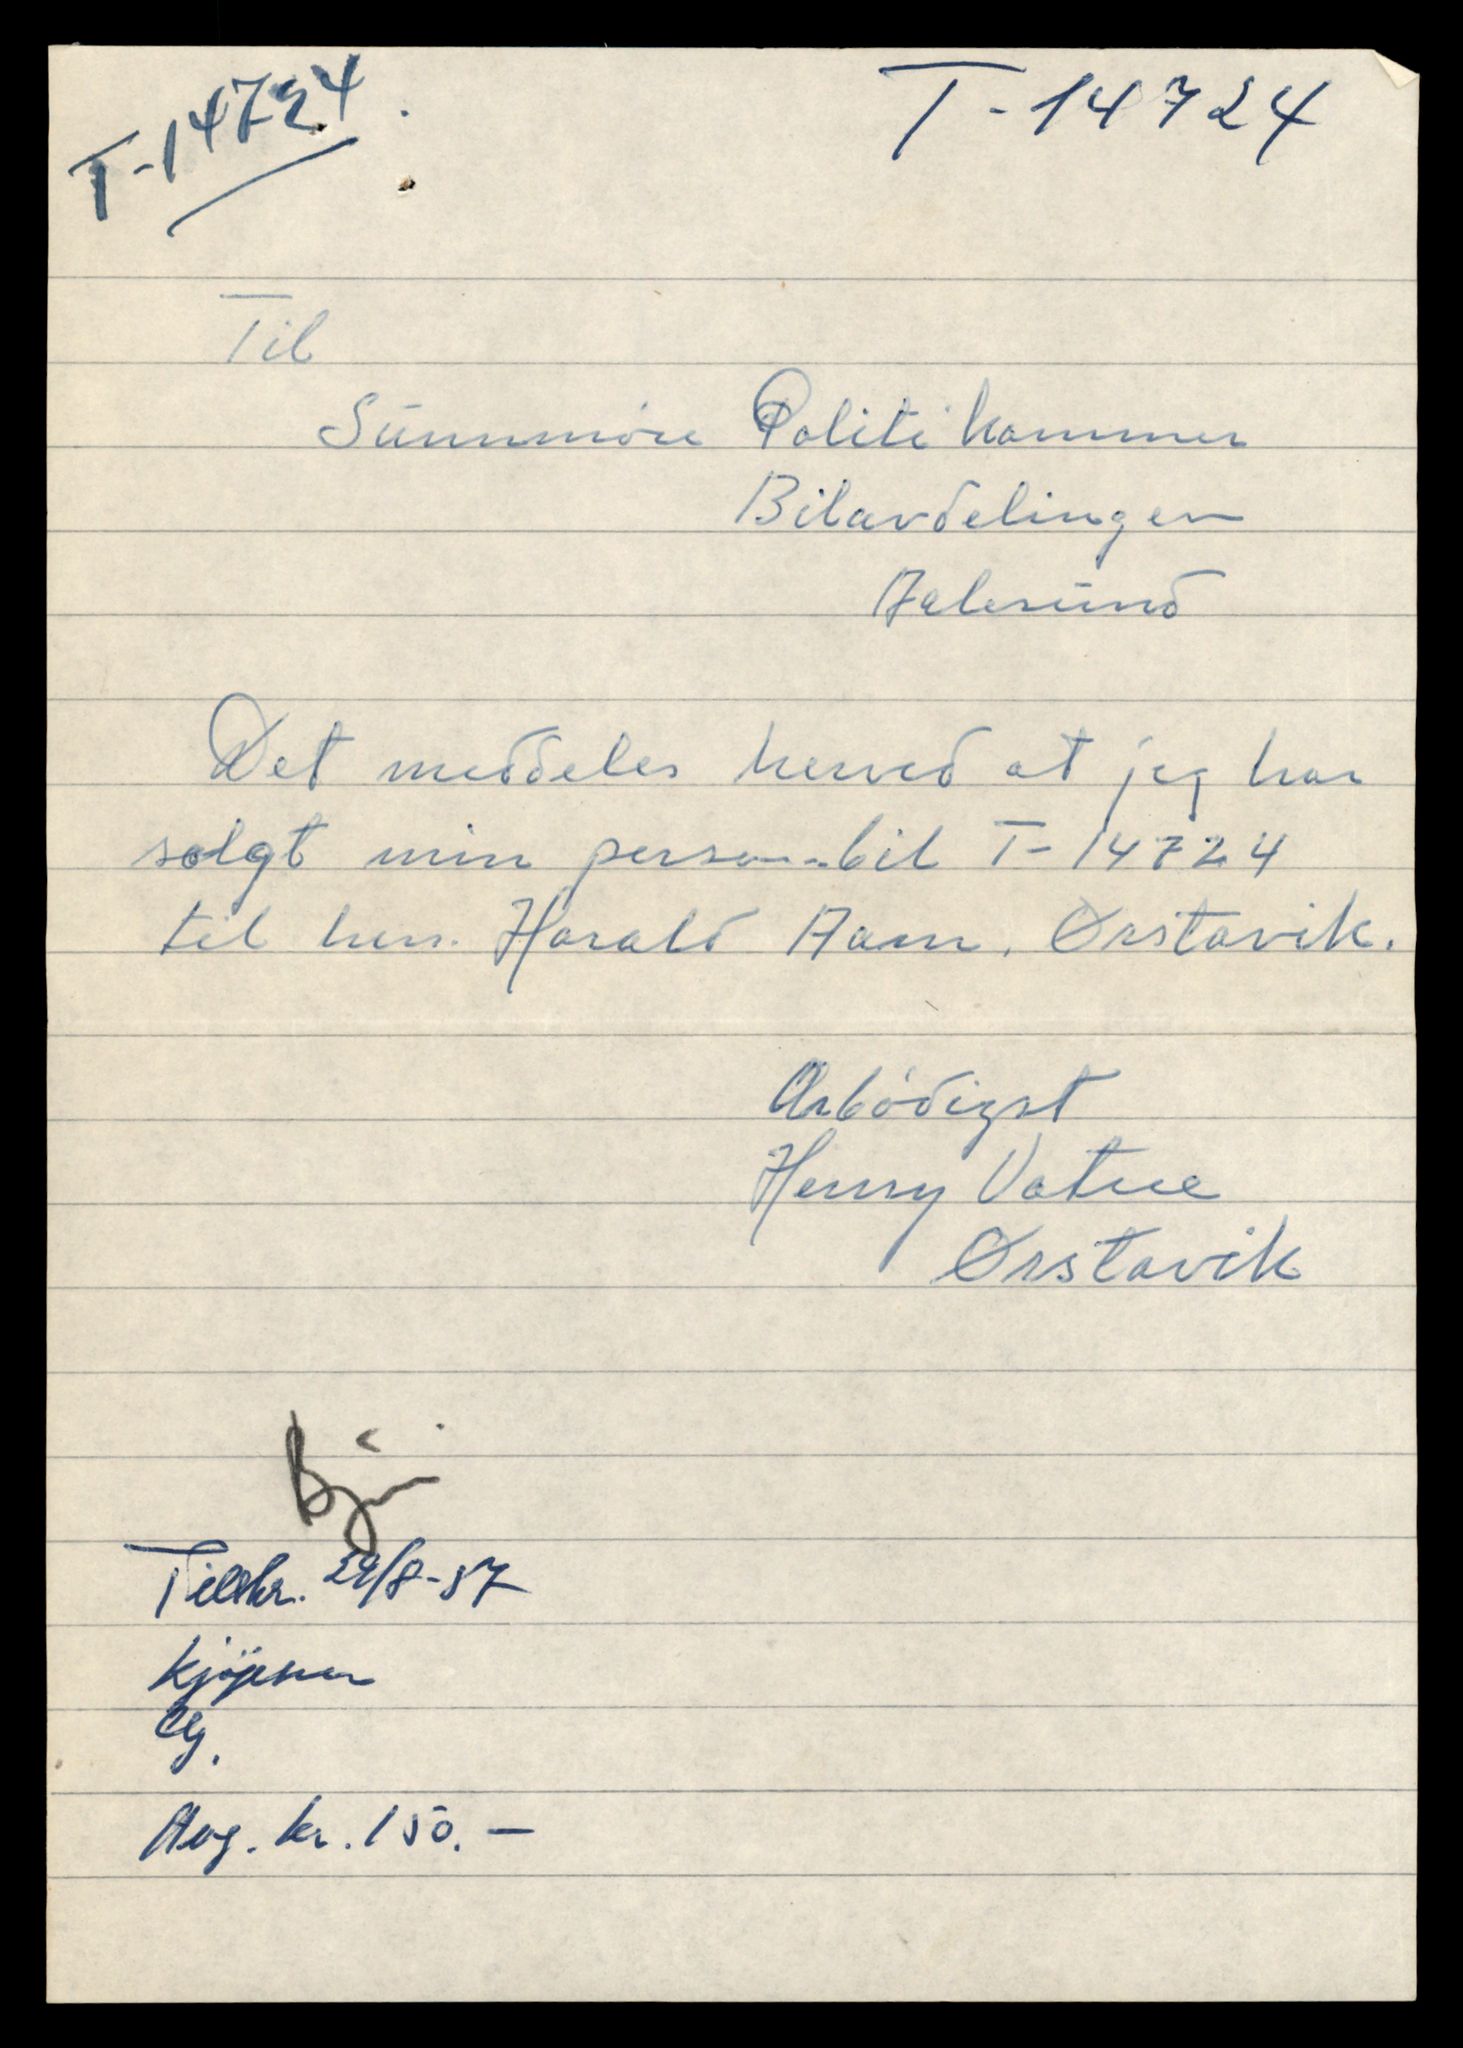 T-14724
T-14724
Til
Sünnmöre Politikammer
Bilavdelingen
Aalesünd
Det meddeles herved at jeg har
solgt min personbil T-14724
til herr. Harald Aam, Ørstavik.
Arbödigst
Henry Vatne
Ørstavik
Tilskr. 29/8-57
kjöperen
Avg. kr. 150.-